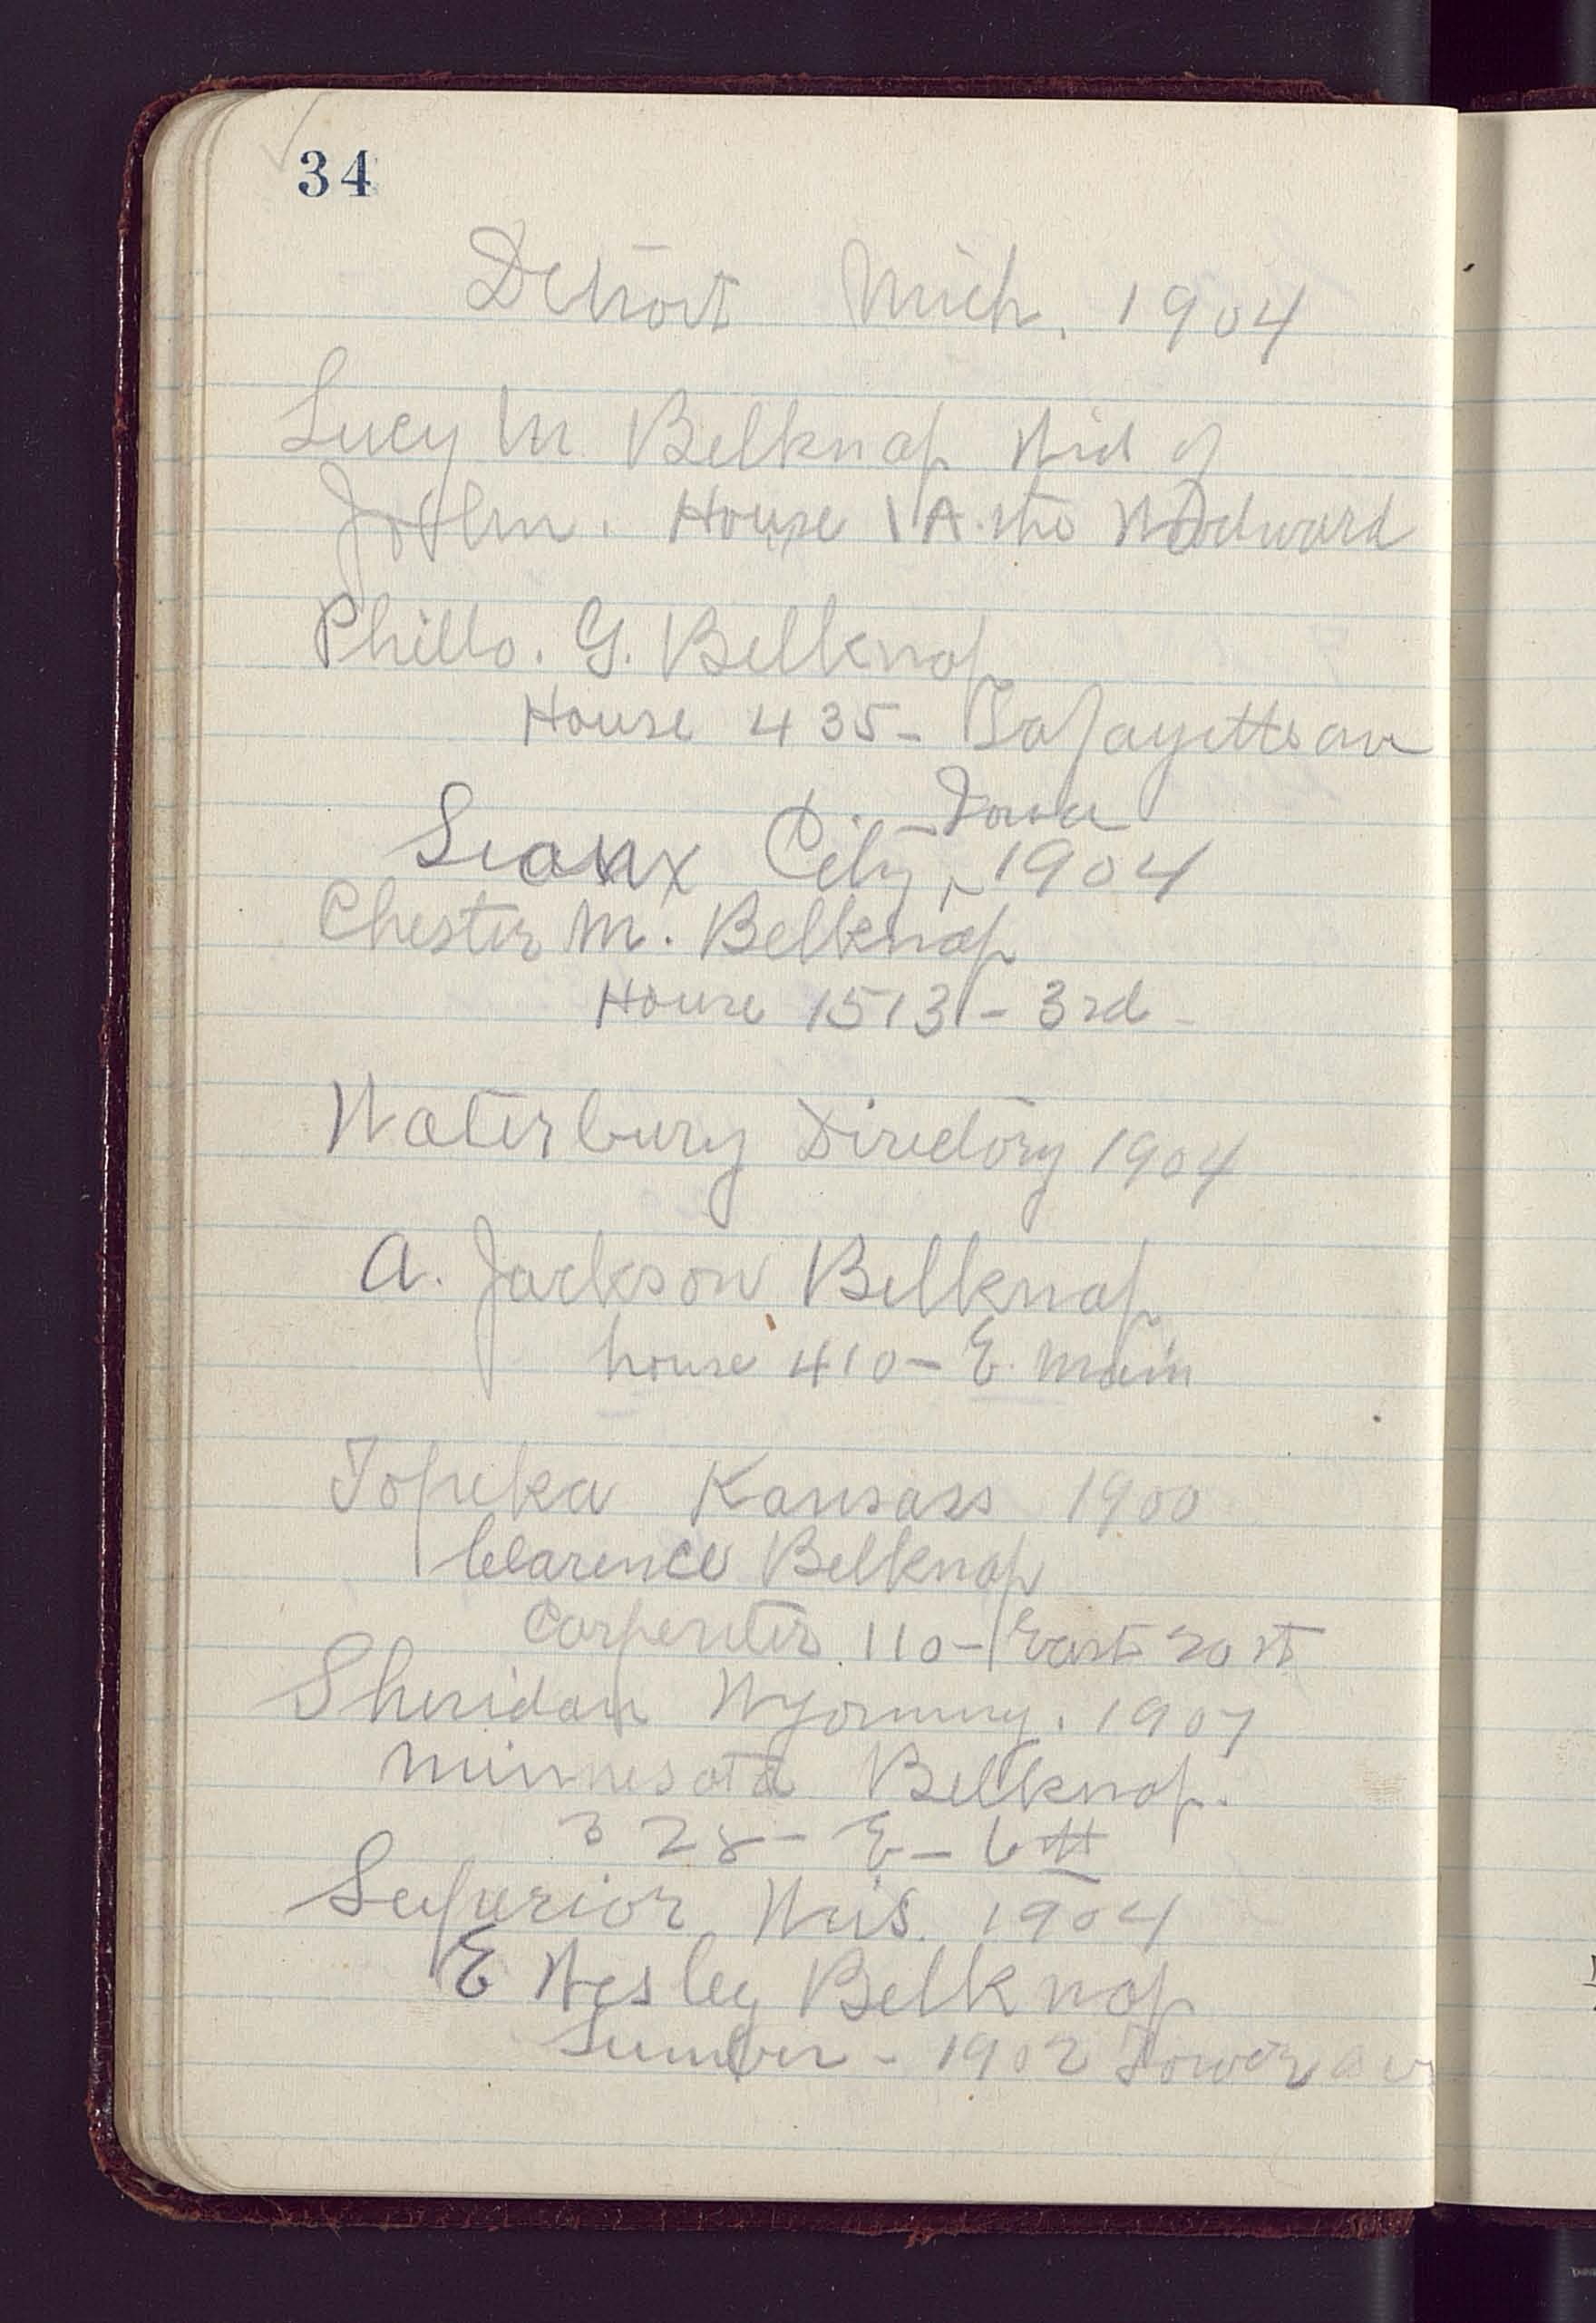 34
Detroit Mich. 1904
Lucy M Belknap Wid of
John. House 1 A. the Woodward
Philo. G. Belknap
House 435 - Lafayette av
Iowa
Sioux City, 1904
Chester M. Belknap
House 1513 - 3rd -
Waterbury Directory 1904
A. Jackson Belknap
house 410 - E. Main
Topeka Kansass 1900
Clarence Belknap
Carpenter 110 - East 20 st
Sheridan Wyoming. 1907
Minnesota Belknap.
328 - E - 6th
Superior Wis. 1904
E Wesley Belknap
- 1902 Tower av